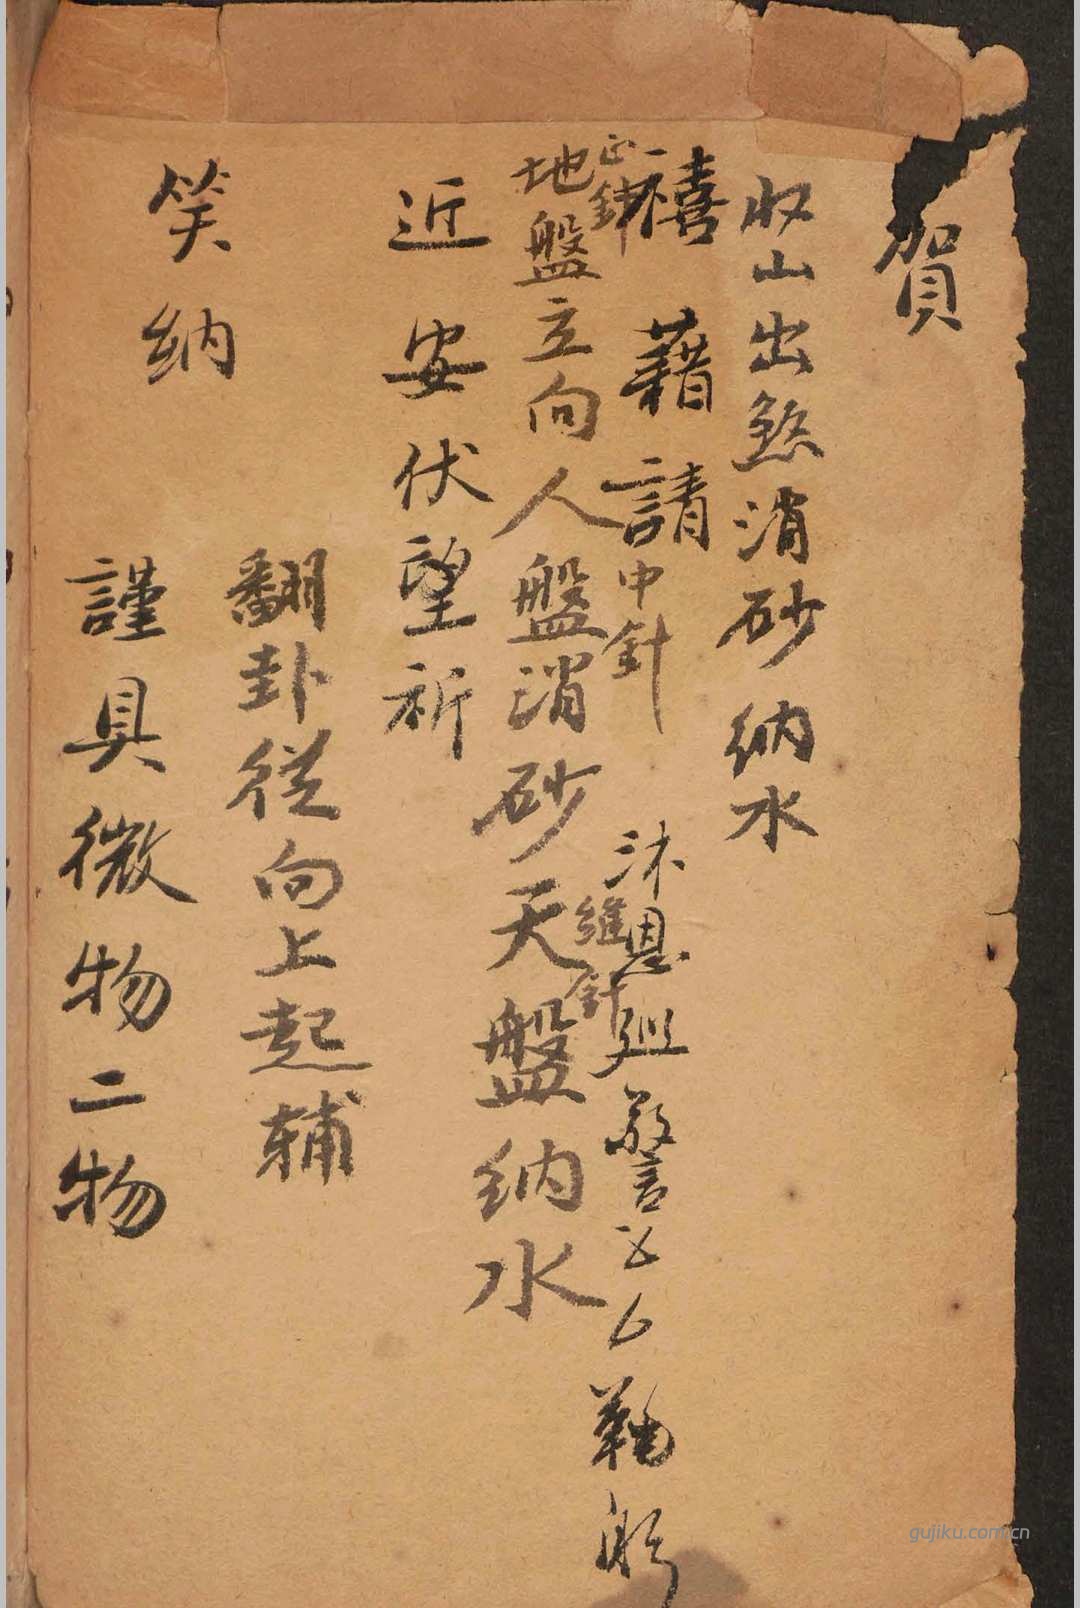 賀
收山出煞消砂納水
禧藉請
沐恩廵警
鞠躬
正針
中針
縫針
地盤立向人盤消砂天盤纳水
近安伏望祈
翻卦從向上起輔
笑纳
謹具微物二物
gujiku.com.cn